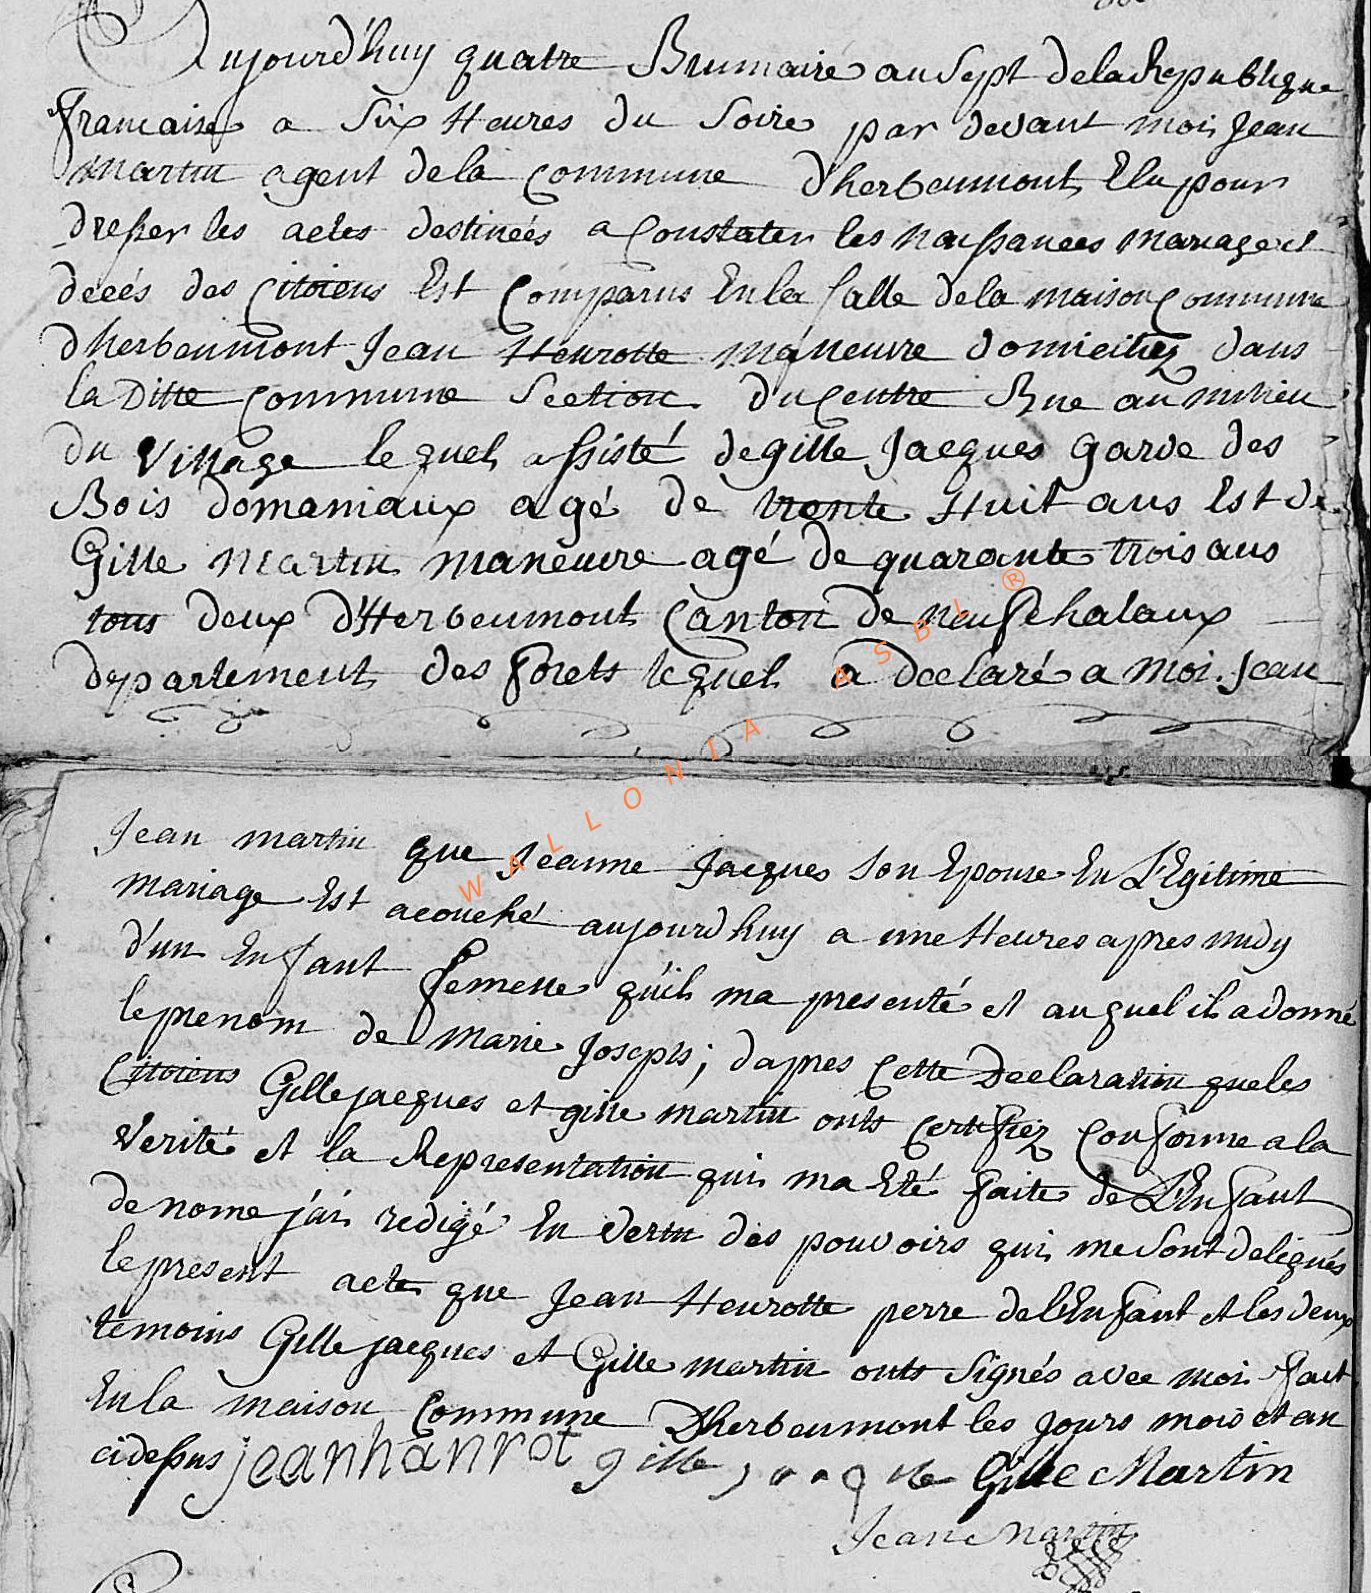 Aujourd'huy quatre Brumaire an Sept de la Republique
francaise a Six Heures du Soire par devant moi Jean
Martin agent de la Commune d'herbeumont Elu pour
dresser les actes destineés a Constater les naissances mariage et
deceés des Citoiens Est Comparus En la Salle de la maison Commune
dherbeumont Jean Heurotte maneuvre domiciliez dans
la Ditte Commune Section du Centre Rue au milieu
du Village lequel assisté de gille Jacques garde des
Bois domaniaux agé de trente Huit ans Est de
Gille Martin maneuvre agé de quarante trois ans
tous deux d'Herbeumont Canton de neufchataux
departement des forets lequel a declaré a moi Jean
WALLONIA ASBL ®
Jean martin que Jeanne Jacques Son Epouse En L'Egitime
mariage Est acouché aujourdhuy a une Heures apres midy
d'un Enfant femelle qu'il ma presenté et auquel il a donné
le prenom de Marie Joseph; dapres Cette Declaration que les
Citoiens Gille jacques et gille martin onts Certifiez Conforme a la
Verité et la Representation qui ma Eté faite de L'Enfant
denome j'ai redigé En vertu des pouvoirs qui me Sont delegués
le present acte que Jean Heurotte perre de l'Enfant et les deux
temoins Gille jacques et Gille martin onts Signés avec moi fait
En la maison Commune Dherbeumont les jours mois et an
cidessus jeanhanrot gille Gille Martin
Jean Martin